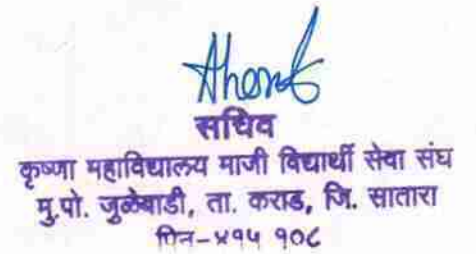 सचिव
कृष्णा महाविद्यालय माजी विद्यार्थी सेवा संघ
मु.पो. जुळेवाडी, ता. कराड, जि. सातारा
पिन-४१५ १०८